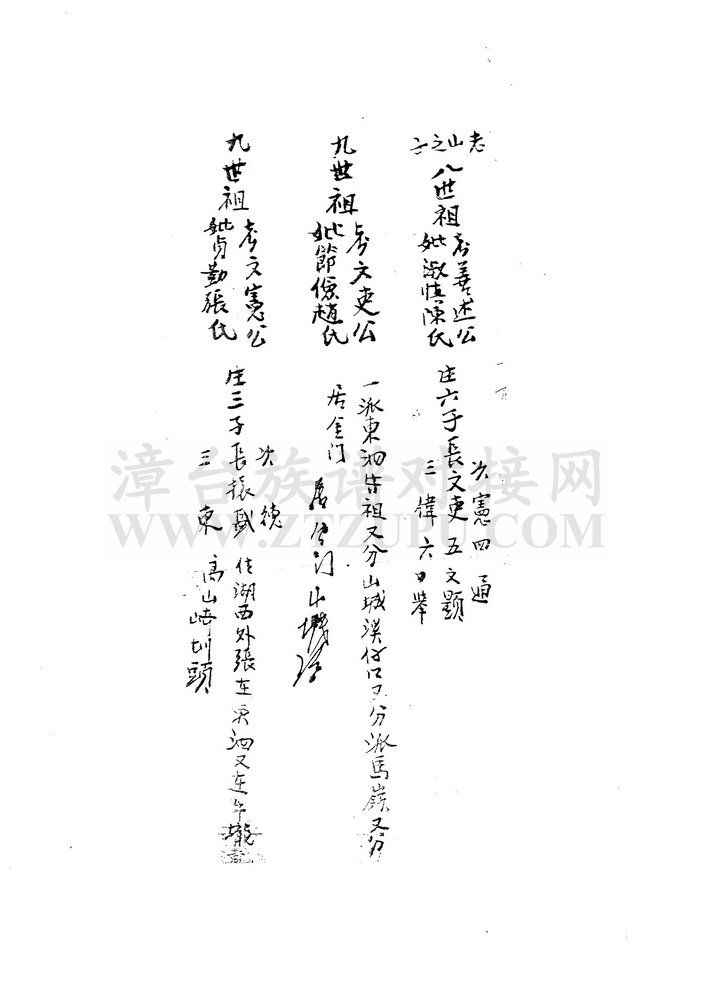 志山之子
八世祖
考善述公
妣淑慎陳氏
生六子長文吏五文題
次憲四通
三偉六曰舉
九世祖
考文吏公
妣節儉趙氏
一派東泗 祖又分山城溪仔口又分派馬嶺又分
居金门
居金门山城
九世祖
考文憲公
妣貞勤張氏
生三子長振
次德
三東
住湖西外張在 泗又連
高山 圳頭
漳台族谱对接网
WWW.ZTZUPU.COM